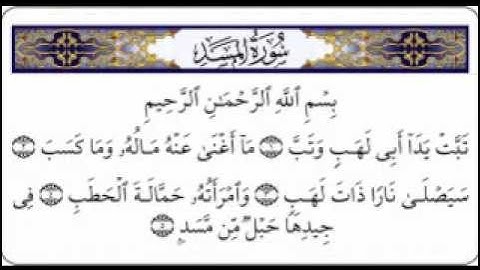 سُورَةُ المَسَدِ
بِسْمِ ٱللَّهِ ٱلرَّحْمَـٰنِ ٱلرَّحِيمِ
تَبَّتْ يَدَآ أَبِى لَهَبٍ وَتَبَّ ۝١ مَآ أَغْنَىٰ عَنْهُ مَالُهُۥ وَمَا كَسَبَ ۝٢
سَيَصْلَىٰ نَارًا ذَاتَ لَهَبٍ ۝٣ وَٱمْرَأَتُهُۥ حَمَّالَةَ ٱلْحَطَبِ ۝٤ فِى
جِيدِهَا حَبْلٌ مِّن مَّسَدٍۭ ۝٥